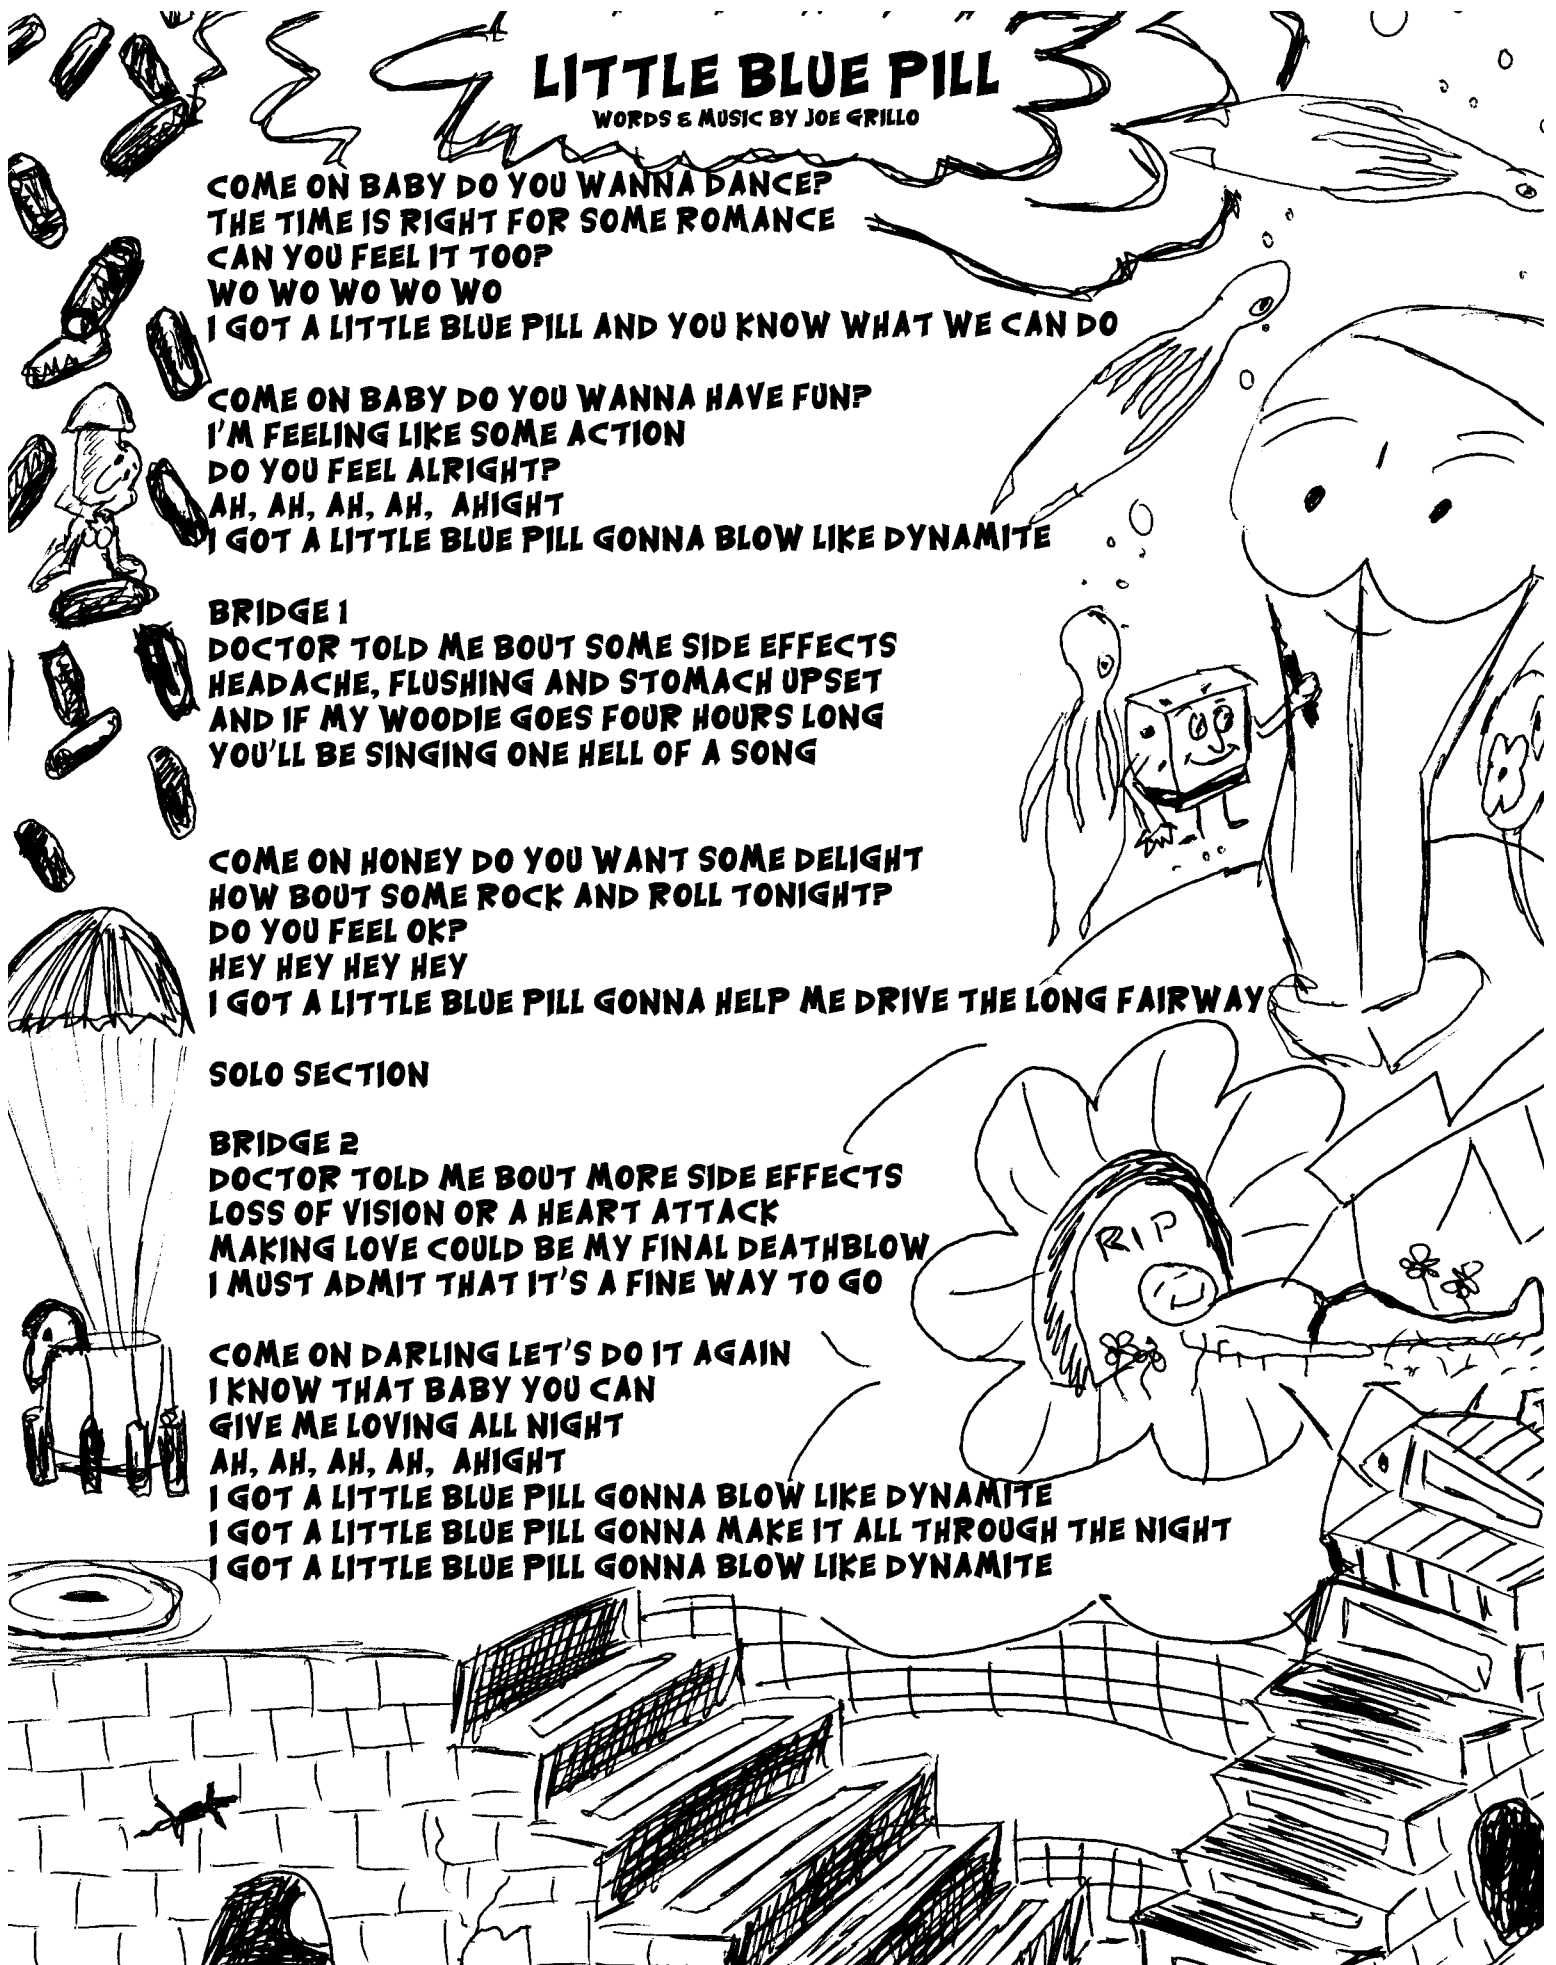 LITTLE BLUE PILL
WORDS & MUSIC BY JOE GRILLO
COME ON BABY DO YOU WANNA DANCE?
THE TIME IS RIGHT FOR SOME ROMANCE
CAN YOU FEEL IT TOO?
WO WO WO WO WO
I GOT A LITTLE BLUE PILL AND YOU KNOW WHAT WE CAN DO
COME ON BABY DO YOU WANNA HAVE FUN?
I'M FEELING LIKE SOME ACTION
DO YOU FEEL ALRIGHT?
AH, AH, AH, AH, AHIGHT
I GOT A LITTLE BLUE PILL GONNA BLOW LIKE DYNAMITE
BRIDGE 1
DOCTOR TOLD ME BOUT SOME SIDE EFFECTS
HEADACHE, FLUSHING AND STOMACH UPSET
AND IF MY WOODIE GOES FOUR HOURS LONG
YOU'LL BE SINGING ONE HELL OF A SONG
COME ON HONEY DO YOU WANT SOME DELIGHT
HOW BOUT SOME ROCK AND ROLL TONIGHT?
DO YOU FEEL OK?
HEY HEY HEY HEY
I GOT A LITTLE BLUE PILL GONNA HELP ME DRIVE THE LONG FAIRWAY
SOLO SECTION
BRIDGE 2
DOCTOR TOLD ME BOUT MORE SIDE EFFECTS
LOSS OF VISION OR A HEART ATTACK
MAKING LOVE COULD BE MY FINAL DEATHBLOW
I MUST ADMIT THAT IT'S A FINE WAY TO GO
RIP
COME ON DARLING LET'S DO IT AGAIN
I KNOW THAT BABY YOU CAN
GIVE ME LOVING ALL NIGHT
AH, AH, AH, AH, AHIGHT
I GOT A LITTLE BLUE PILL GONNA BLOW LIKE DYNAMITE
I GOT A LITTLE BLUE PILL GONNA MAKE IT ALL THROUGH THE NIGHT
I GOT A LITTLE BLUE PILL GONNA BLOW LIKE DYNAMITE